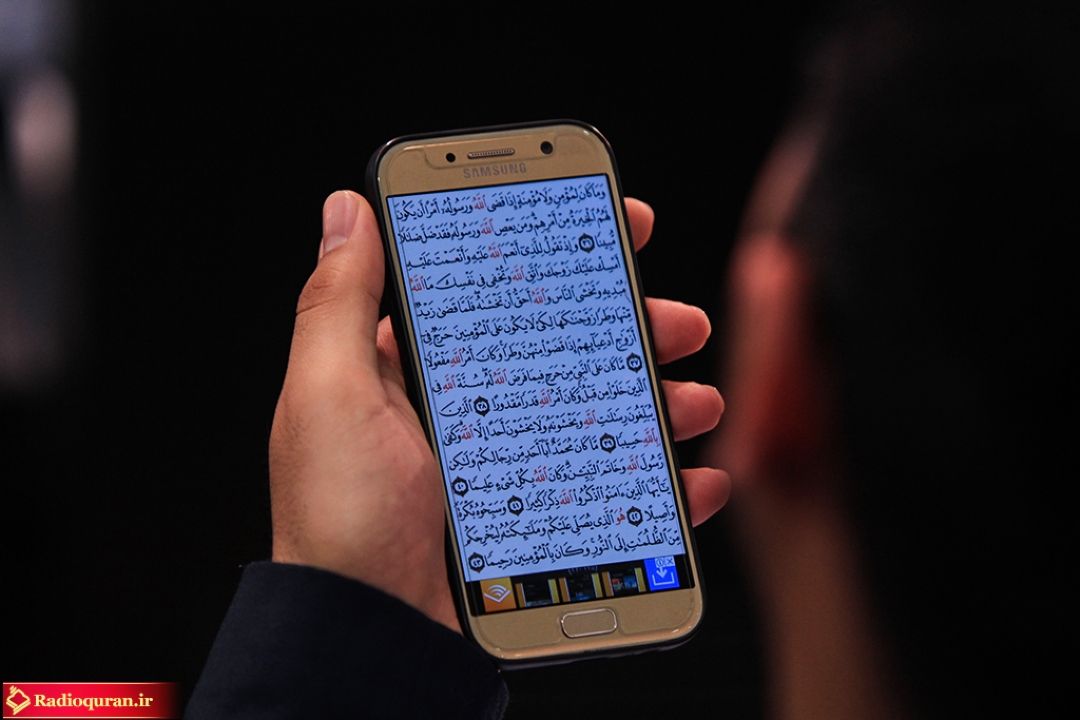 SAMSUNG
وَمَا كَانَ لِمُؤْمِنٍ وَلَا مُؤْمِنَةٍ إِذَا قَضَى ٱللَّهُ وَرَسُولُهُۥٓ أَمْرًا أَن يَكُونَ
لَهُمُ ٱلْخِيَرَةُ مِنْ أَمْرِهِمْ وَمَن يَعْصِ ٱللَّهَ وَرَسُولَهُۥ فَقَدْ ضَلَّ ضَلَٰلًا
مُّبِينًا ٣٦ وَإِذْ تَقُولُ لِلَّذِىٓ أَنْعَمَ ٱللَّهُ عَلَيْهِ وَأَنْعَمْتَ عَلَيْهِ
أَمْسِكْ عَلَيْكَ زَوْجَكَ وَٱتَّقِ ٱللَّهَ وَتُخْفِى فِى نَفْسِكَ مَا ٱللَّهُ
مُبْدِيهِ وَتَخْشَى ٱلنَّاسَ وَٱللَّهُ أَحَقُّ أَن تَخْشَىٰهُ فَلَمَّا قَضَىٰ زَيْدٌ
مِّنْهَا وَطَرًا زَوَّجْنَٰكَهَا لِكَىْ لَا يَكُونَ عَلَى ٱلْمُؤْمِنِينَ حَرَجٌ فِىٓ
أَزْوَٰجِ أَدْعِيَآئِهِمْ إِذَا قَضَوْا۟ مِنْهُنَّ وَطَرًا وَكَانَ أَمْرُ ٱللَّهِ مَفْعُولًا
٣٧ مَّا كَانَ عَلَى ٱلنَّبِىِّ مِنْ حَرَجٍ فِيمَا فَرَضَ ٱللَّهُ لَهُۥ سُنَّةَ ٱللَّهِ فِى
ٱلَّذِينَ خَلَوْا۟ مِن قَبْلُ وَكَانَ أَمْرُ ٱللَّهِ قَدَرًا مَّقْدُورًا ٣٨ ٱلَّذِينَ
يُبَلِّغُونَ رِسَٰلَٰتِ ٱللَّهِ وَيَخْشَوْنَهُۥ وَلَا يَخْشَوْنَ أَحَدًا إِلَّا ٱللَّهَ وَكَفَىٰ
بِٱللَّهِ حَسِيبًا ٣٩ مَّا كَانَ مُحَمَّدٌ أَبَآ أَحَدٍ مِّن رِّجَالِكُمْ وَلَٰكِن
رَّسُولَ ٱللَّهِ وَخَاتَمَ ٱلنَّبِيِّـۧنَ وَكَانَ ٱللَّهُ بِكُلِّ شَىْءٍ عَلِيمًا ٤٠
يَٰٓأَيُّهَا ٱلَّذِينَ ءَامَنُوا۟ ٱذْكُرُوا۟ ٱللَّهَ ذِكْرًا كَثِيرًا ٤١ وَسَبِّحُوهُ بُكْرَةً
وَأَصِيلًا ٤٢ هُوَ ٱلَّذِى يُصَلِّى عَلَيْكُمْ وَمَلَٰٓئِكَتُهُۥ لِيُخْرِجَكُم
مِّنَ ٱلظُّلُمَٰتِ إِلَى ٱلنُّورِ وَكَانَ بِٱلْمُؤْمِنِينَ رَحِيمًا ٤٣
Radioquran.ir